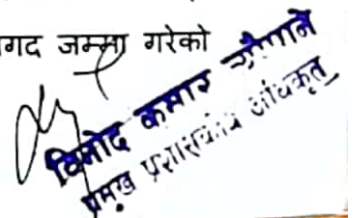 गद जम्मा गरेको
विनोद कुमार न्यौपाने
प्रमुख प्रशासकीय अधिकृत